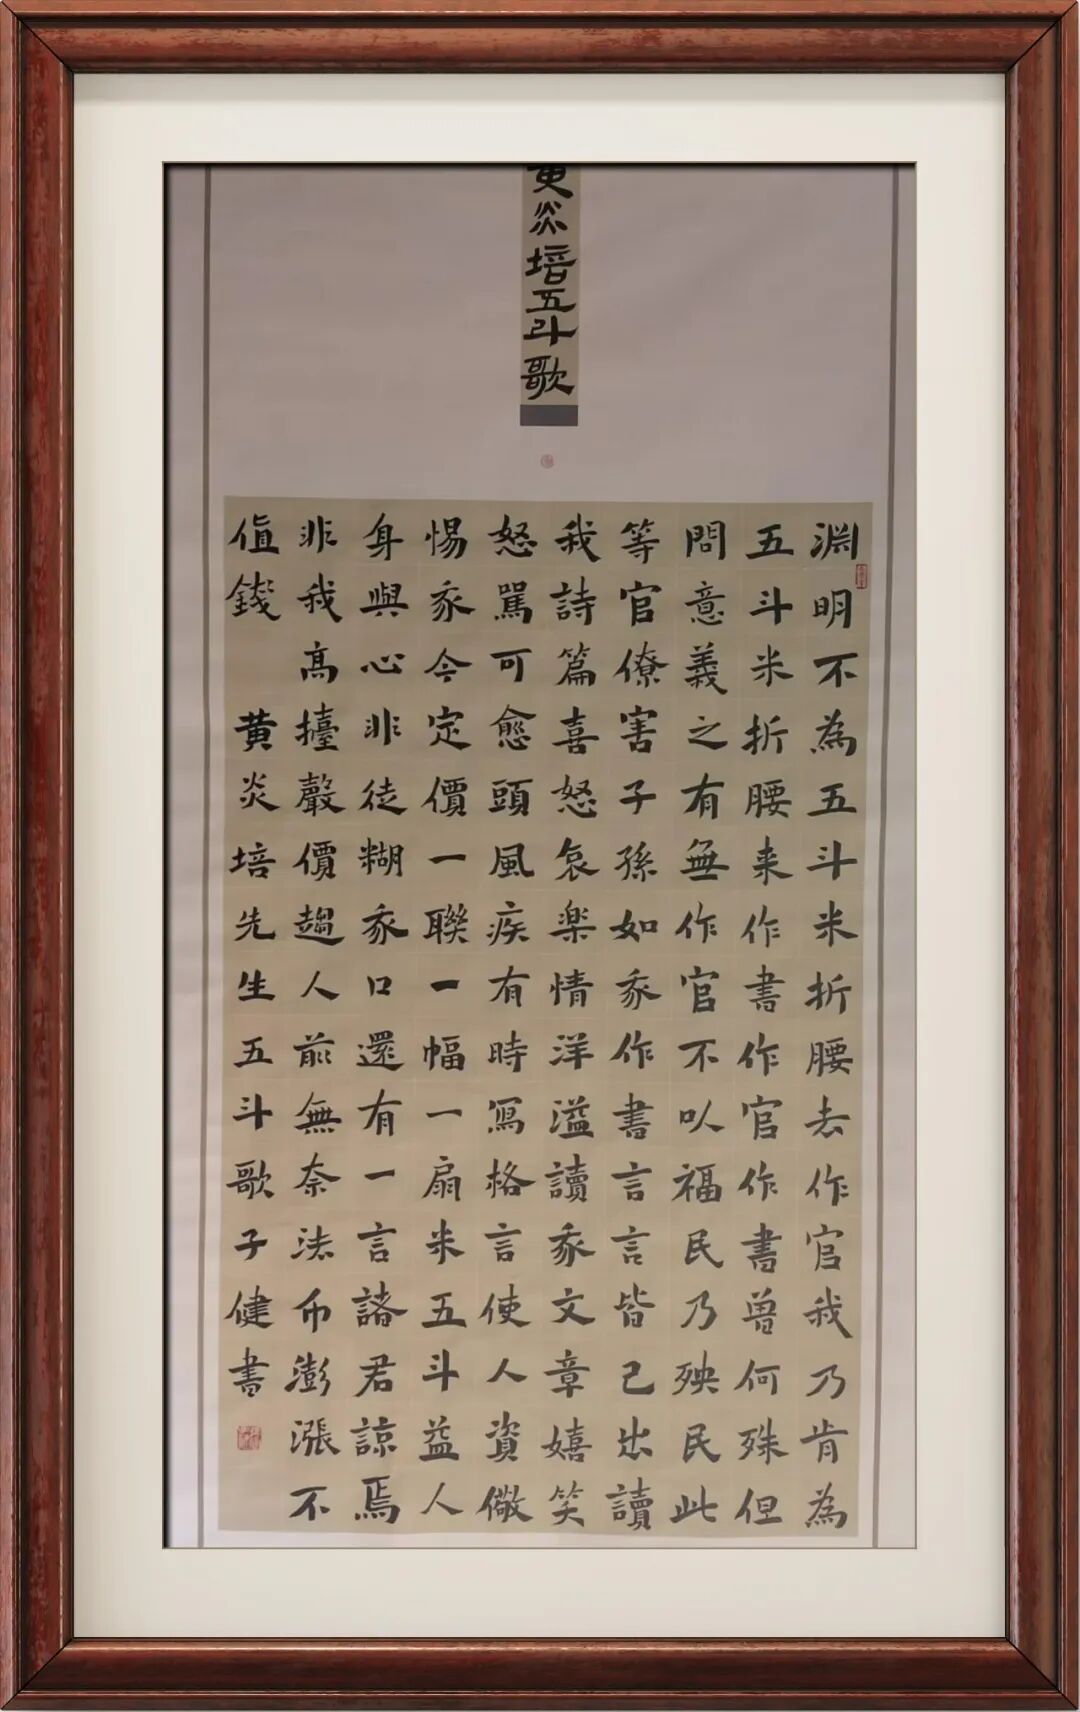 黄炎培五斗歌
淵明不為五斗米折腰去作官我乃肯為
五斗米折腰来作書作官作書曾何殊但
問意義之有無作官不㕥福民乃殃民此
等官僚害子孫如我作書言言皆己出讀
我詩篇喜怒哀楽情洋溢讀我文章嬉笑
怒罵可愈頭風疾有時寫格言使人資儆
惕我今定價一聯一幅一扇米五斗益人
身與心非徒糊我口還有一言諸君諒焉
非我高擡聲價趨人前無奈法币澎漲不
值錢 黄炎培先生五斗歌子健書